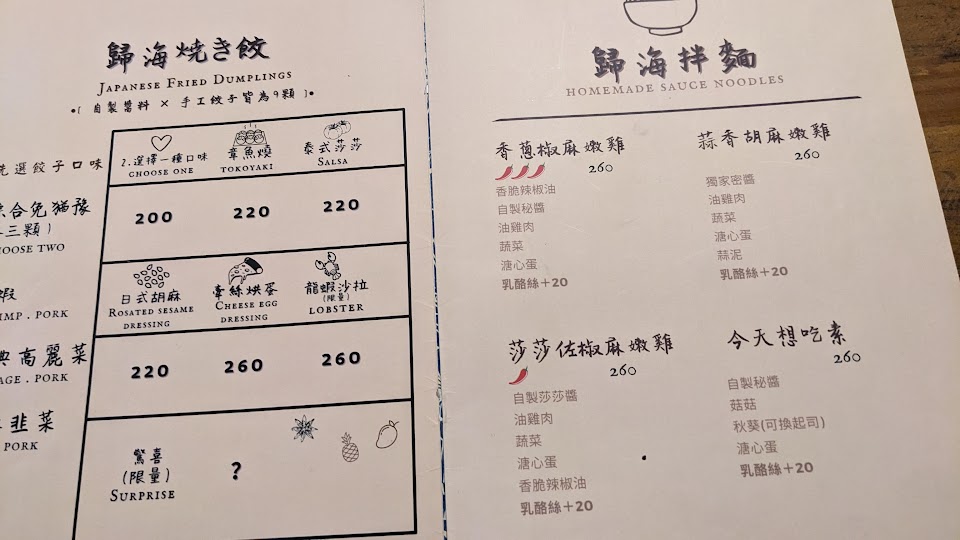 歸海燒き餃
Japanese Fried Dumplings
•[ 自製醬料 × 手工餃子皆為9顆 ]•
選餃子口味
綜合免猶豫
三顆)
CHOOSE TWO
蝦
SHRIMP . PORK
典高麗菜
CABBAGE . PORK
韭菜
PORK
2.選擇一種口味
CHOOSE ONE
章魚燒
TOKOYAKI
泰式莎莎
SALSA
200
220
220
日式胡麻
ROSATED SESAME
DRESSING
牽絲烘蛋
CHEESE EGG
DRESSING
龍蝦沙拉
(限量)
LOBSTER
220
260
260
驚喜
(限量)
SURPRISE
?
歸海拌麵
HOMEMADE SAUCE NOODLES
香蔥椒麻嫩雞
260
香脆辣椒油
自製秘醬
油雞肉
蔬菜
溏心蛋
乳酪絲+20
蒜香胡麻嫩雞
260
獨家密醬
油雞肉
蔬菜
溏心蛋
蒜泥
乳酪絲+20
莎莎佐椒麻嫩雞
260
自製莎莎醬
油雞肉
蔬菜
溏心蛋
香脆辣椒油
乳酪絲+20
今天想吃素
260
自製秘醬
菇菇
秋葵(可換起司)
溏心蛋
乳酪絲+20